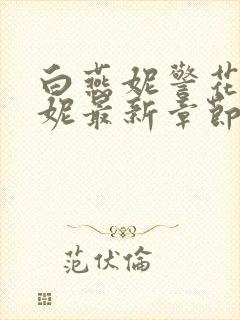 白燕妮警花
妮最新章節
范伏倫